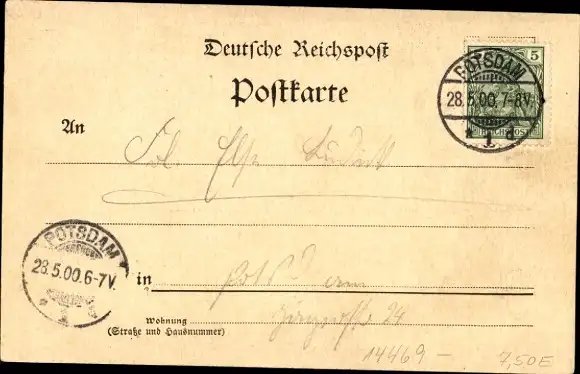 Deutsche Reichspost
Postkarte
5
POTSDAM
28.5.00.7-8V.
* 1 d
REICHSPOST
An
Frl. Else
POTSDAM
28.5.00.6-7V.
in
Potsdam
Wohnung
(Straße und Hausnummer)
24
14469 -
7,50E